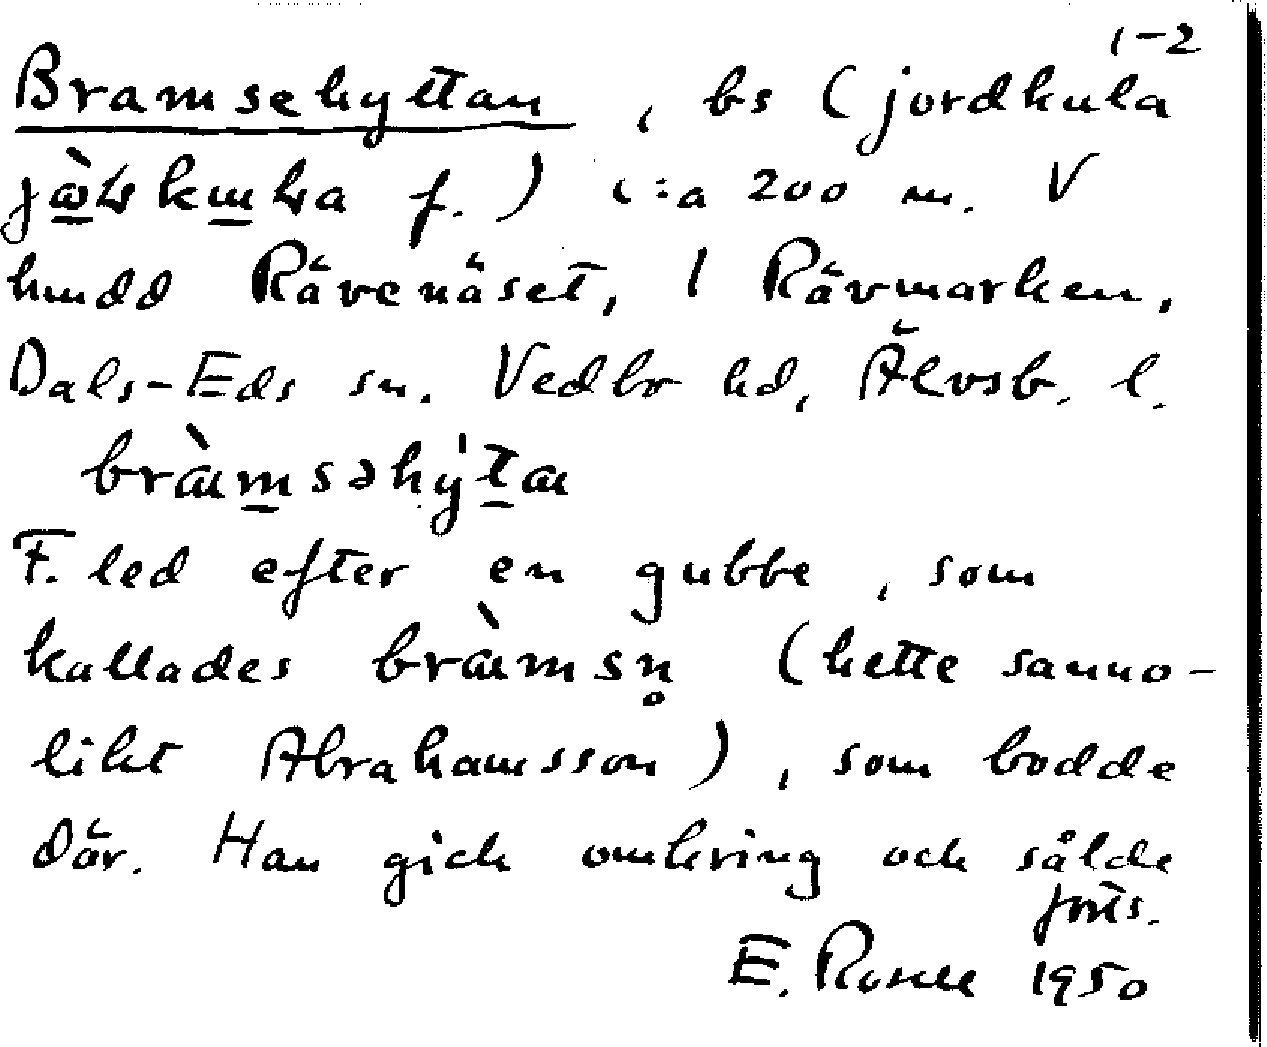 1-2
Bramsehyttan, bs (jordkula
f.) c:a 200 m. V
hmdd Rävenäset, 1 Rävmarken,
Dals-Eds sn. Vedbo hd, Älvsb. l.
F. led efter en gubbe, som
kallades (hette sanno-
likt Abrahamsson), som bodde
där. Han gick omkring och sålde
forts.
E. 1950